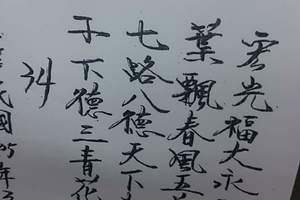 雲光福大永
葉飄春風五
七路八德天下
于下德三青花
34
民國95年